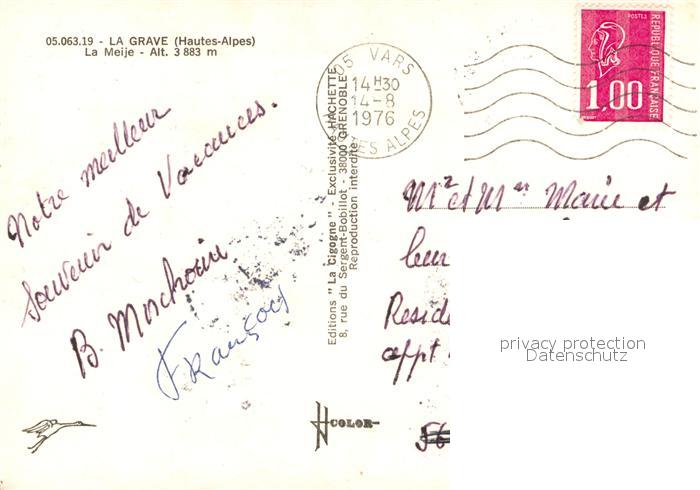 05.063.19 - LA GRAVE (Hautes-Alpes)
La Meije - Alt. 3 883 m
Notre meilleur
souvenir de Vacances.
B.
François
Editions "La Cigogne" - Exclusivité HACHETTE
8, rue du Sergent-Bobillot - 38000 GRENOBLE
Reproduction interdite
COLOR
05 VARS
14H30
14-8
1976
ALPES
POSTES
REPUBLIQUE FRANÇAISE
1,00
Mr et Mme Marie et
leur
Resid
appt
56
privacy protection
Datenschutz